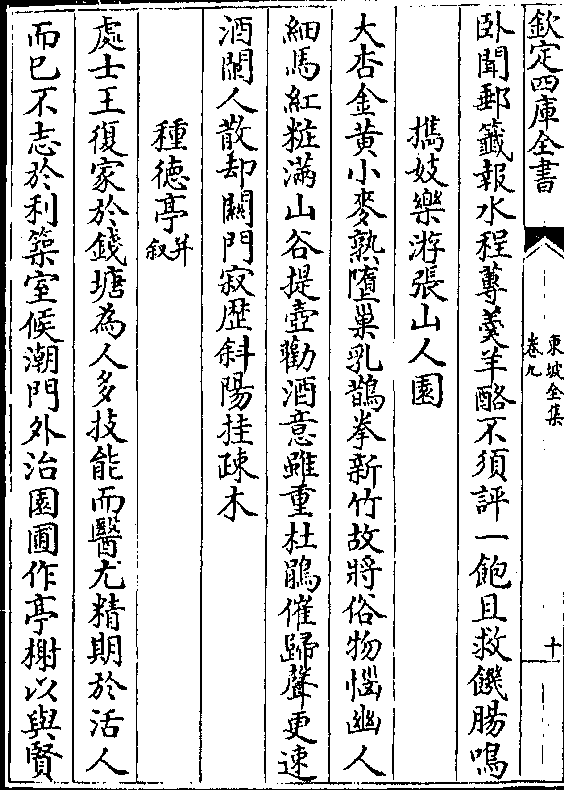 欽定四庫全書
東坡全集
卷九
十
卧聞郵籤報水程蓴羮羊酪不須評一飽且救饑腸鳴
攜妓樂游張山人園
大杏金黄小麥熟墮巢乳鵲拳新竹故將俗物惱幽人
細馬紅粧滿山谷提壺勸酒意雖重杜鵑催歸聲更速
酒闌人散却關門寂歴斜陽挂疎木
種德亭
并
叙
處士王復家於錢塘為人多技能而醫尤精期於活人
而已不志於利築室候潮門外治園圃作亭榭以與賢